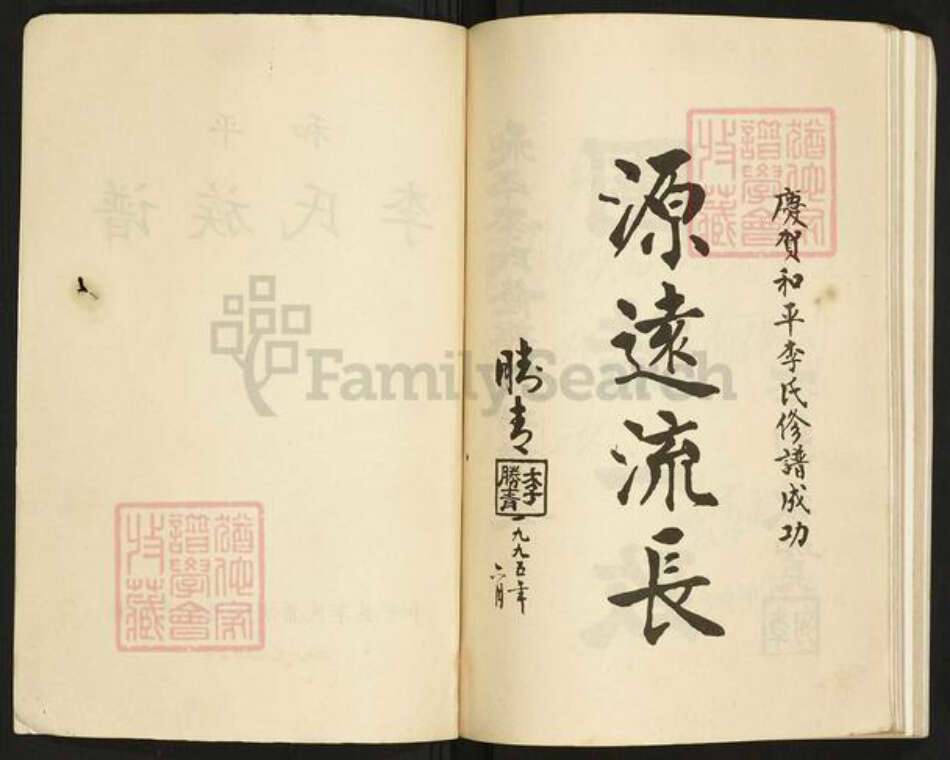 慶賀和平李氏修譜成功
源遠流長
勝青
李勝青
一九九五年
六月
猶他家譜學會收藏
和平
李氏族谱
猶他家譜學會收藏
FamilySearch